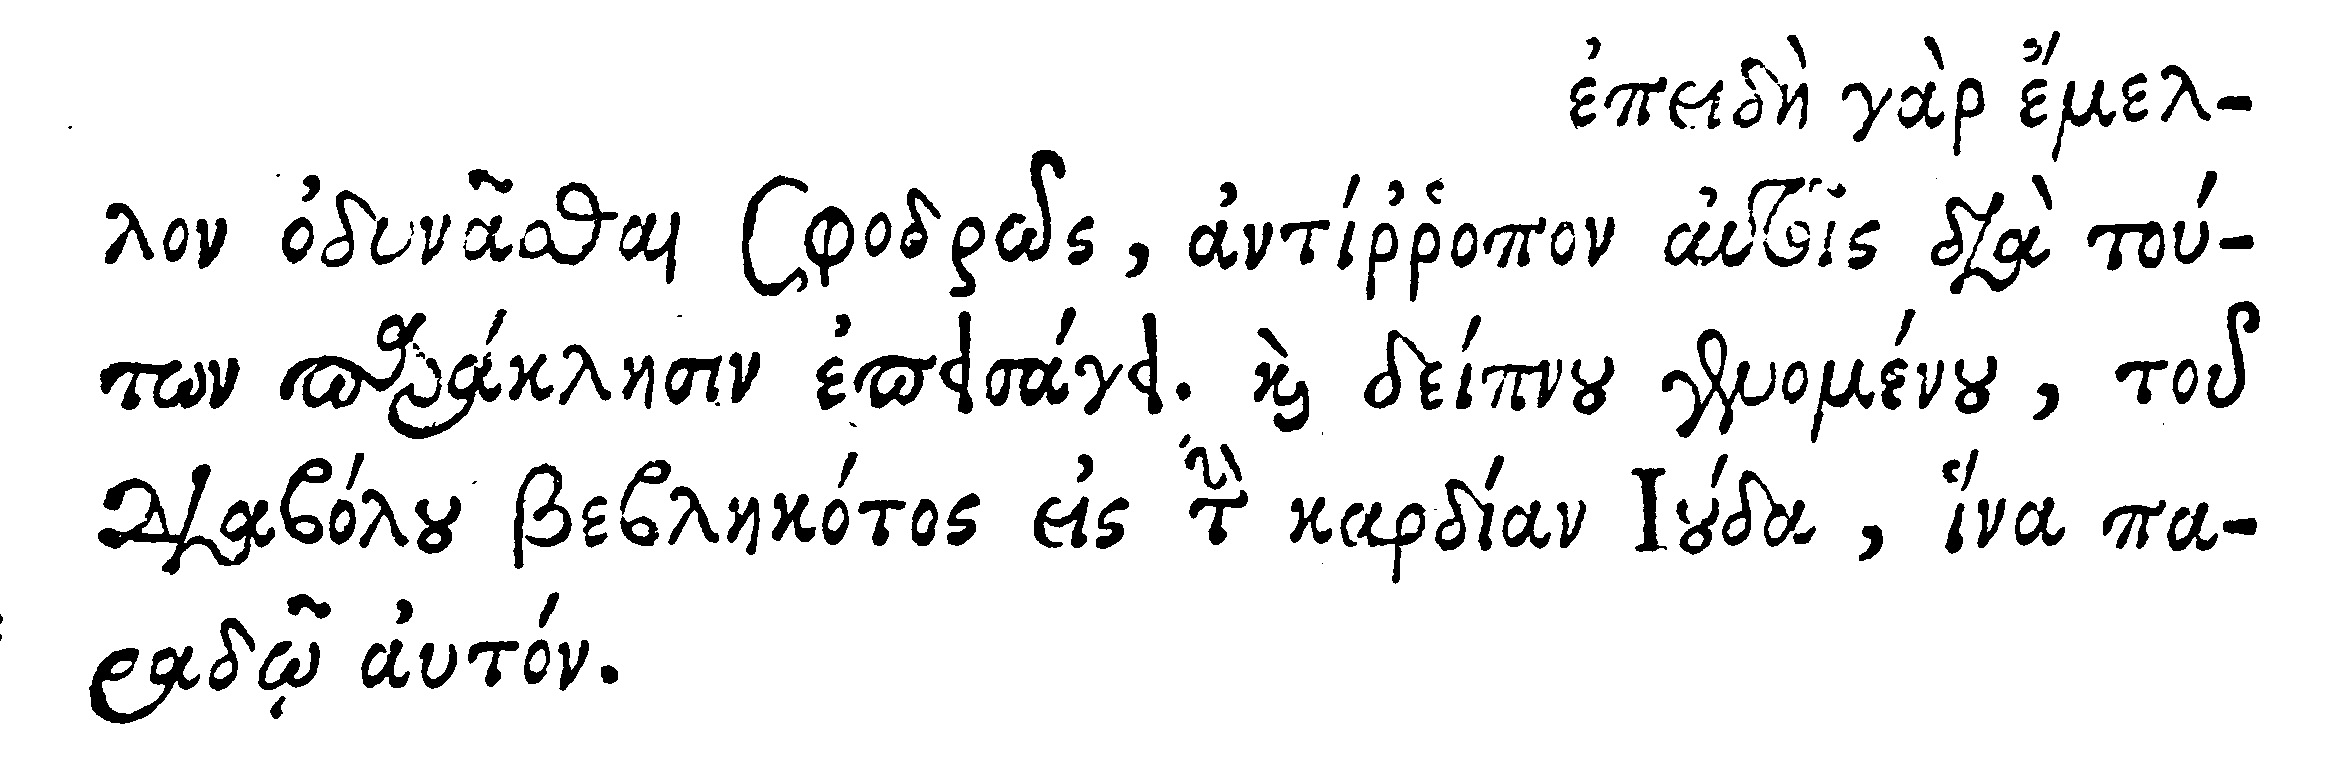 ἐπειδὴ γὰρ ἔμελ-
λον ὀδυνᾶσθαι σφοδρῶς, ἀντίῤῥοπον αὐτοῖς διὰ τού-
των παράκλησιν ἐπεισάγει. καὶ δείπνου γενομένου, τοῦ
διαβόλου βεβληκότος εἰς τὴν καρδίαν Ιούδα, ἵνα πα-
ραδῷ ἀυτόν.